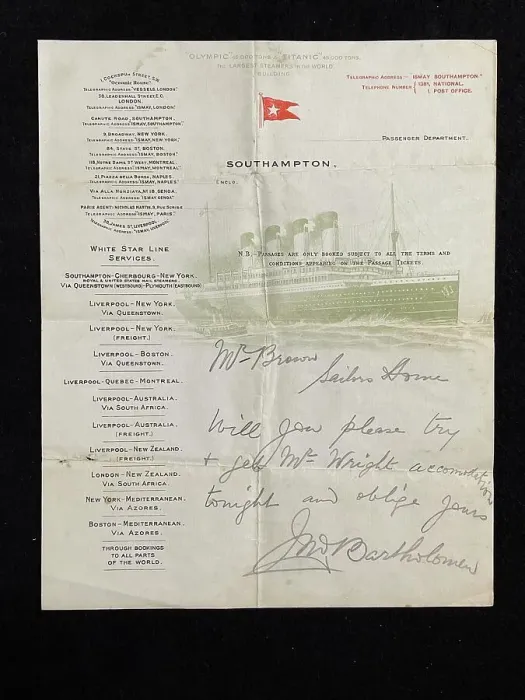 "OLYMPIC" 45,000 TONS. "TITANIC" 45,000 TONS.
THE LARGEST STEAMERS IN THE WORLD.
BUILDING
"OCEANIC HOUSE."
TELEGRAPHIC ADDRESS "VESSELS, LONDON"
38, LEADENHALL STREET, E.C.
LONDON.
TELEGRAPHIC ADDRESS "ISMAY, LONDON"
CANUTE ROAD, SOUTHAMPTON.
TELEGRAPHIC ADDRESS "ISMAY, SOUTHAMPTON."
9, BROADWAY, NEW YORK.
TELEGRAPHIC ADDRESS "ISMAY, NEW YORK."
84, STATE ST, BOSTON.
TELEGRAPHIC ADDRESS "ISMAY, BOSTON"
118, NOTRE DAME ST WEST, MONTREAL.
TELEGRAPHIC ADDRESS "ISMAY, MONTREAL"
21, PIAZZA DELLA BORSA, NAPLES.
TELEGRAPHIC ADDRESS "ISMAY, NAPLES"
VIA ALLA NUNZIATA, Nº 18, GENOA.
TELEGRAPHIC ADDRESS "ISMAY GENOA"
PARIS AGENT: NICHOLAS MARTIN, 9, RUE SCRIBE
TELEGRAPHIC ADDRESS "ISMAY, PARIS"
30, JAMES ST, LIVERPOOL
TELEGRAPHIC ADDRESS "ISMAY, LIVERPOOL"
TELEGRAPHIC ADDRESS – "ISMAY SOUTHAMPTON."
TELEPHONE NUMBER { 1361, NATIONAL.
POST OFFICE.
PASSENGER DEPARTMENT.
SOUTHAMPTON.
ENCLO.
N.B.– PASSAGES ARE ONLY BOOKED SUBJECT TO ALL THE TERMS AND
CONDITIONS APPEARING ON THE PASSAGE TICKETS.
WHITE STAR LINE
SERVICES.
SOUTHAMPTON-CHERBOURG-NEW YORK.
ROYAL & UNITED STATES MAIL STEAMERS
VIA QUEENSTOWN (WESTBOUND)–PLYMOUTH (EASTBOUND)
LIVERPOOL–NEW YORK.
VIA QUEENSTOWN.
LIVERPOOL–NEW YORK.
(FREIGHT.)
LIVERPOOL–BOSTON.
VIA QUEENSTOWN.
LIVERPOOL–QUEBEC–MONTREAL.
LIVERPOOL–AUSTRALIA.
VIA SOUTH AFRICA.
LIVERPOOL–AUSTRALIA.
(FREIGHT.)
LIVERPOOL–NEW ZEALAND.
(FREIGHT.)
LONDON–NEW ZEALAND.
VIA SOUTH AFRICA.
NEW YORK–MEDITERRANEAN.
VIA AZORES.
BOSTON–MEDITERRANEAN.
VIA AZORES.
THROUGH BOOKINGS
TO ALL PARTS
OF THE WORLD.
Mr Brown
Sailors Home
Will you please try
+ get Mr Wright accomodation
tonight and oblige yours
Jno Bartholomew